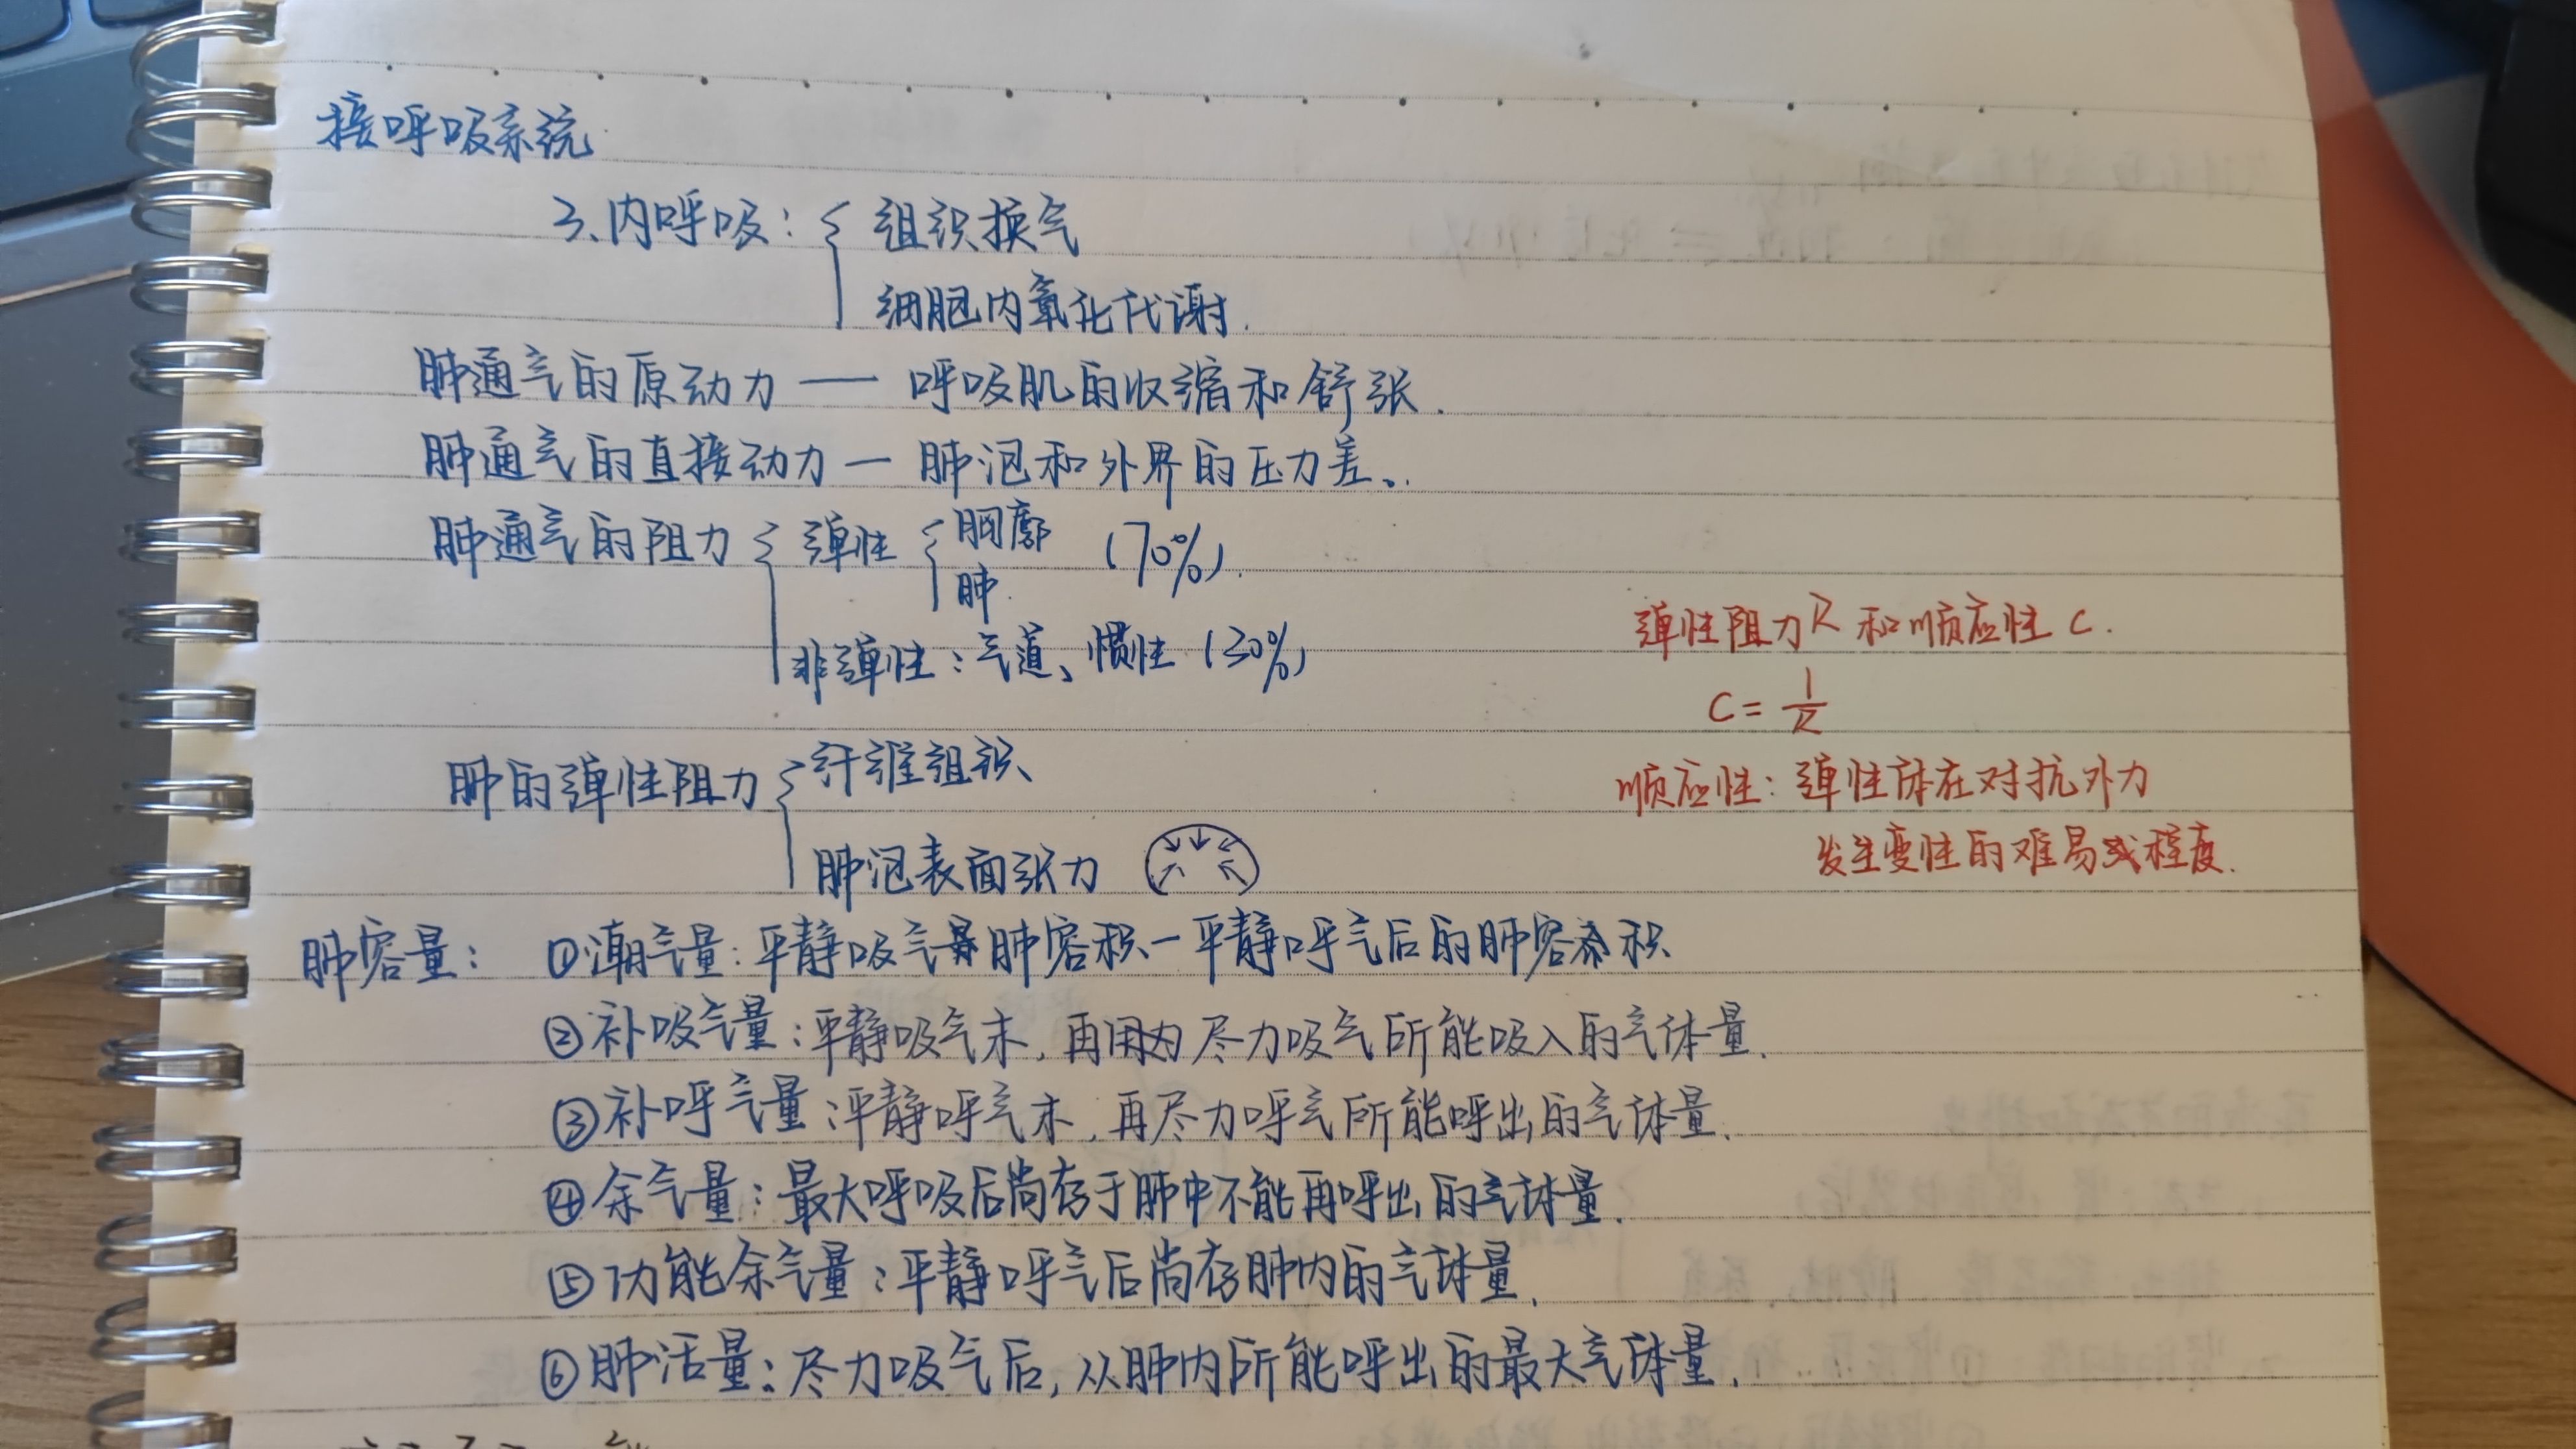 接呼吸系统
3、内呼吸：{ 组织换气
细胞内氧化代谢.
肺通气的原动力 — 呼吸肌的收缩和舒张.
肺通气的直接动力 — 肺泡和外界的压力差.
肺通气的阻力 { 弹性 { 胸廓 (70%).
肺.
非弹性：气道、惯性 (30%)
弹性阻力R 和顺应性 C.
C = 1/R
肺的弹性阻力 { 纤维组织
顺应性：弹性体在对抗外力
肺泡表面张力
发生变性的难易程度.
肺容量： ①潮气量：平静吸气肺容积—平静呼气后的肺容积
②补吸气量：平静吸气末, 再尽力吸气所能吸入的气体量.
③补呼气量：平静呼气末, 再尽力呼气所能呼出的气体量.
④余气量：最大呼吸后尚存于肺中不能再呼出的气体量.
⑤功能余气量：平静呼气后尚存肺内的气体量.
⑥肺活量：尽力吸气后, 从肺内所能呼出的最大气体量.